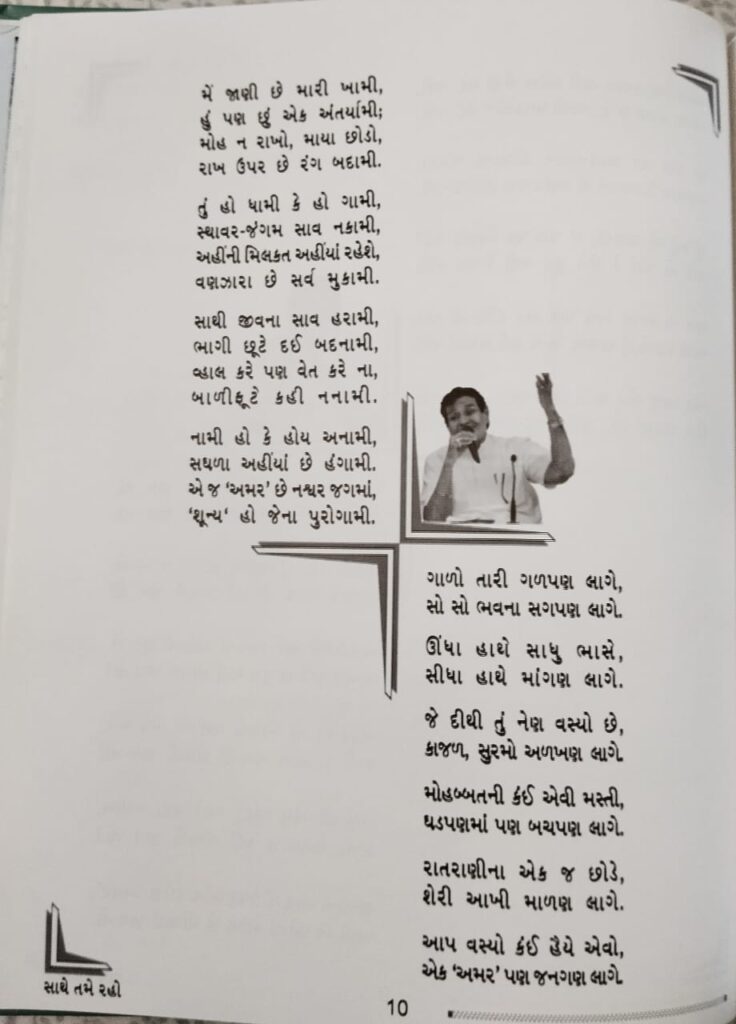 મેં જાણી છે મારી ખામી,
હું પણ છું એક અંતર્યામી;
મોહ ન રાખો, માયા છોડો,
રાખ ઉપર છે રંગ બદામી.
તું હો ધામી કે હો ગામી,
સ્થાવર-જંગમ સાવ નકામી,
અહીંની મિલકત અહીંયાં રહેશે,
વણઝારા છે સર્વ મુકામી.
સાથી જીવના સાવ હરામી,
ભાગી છૂટે દઈ બદનામી,
વ્હાલ કરે પણ વેત કરે ના,
બાળીફૂટે કહી નનામી.
નામી હો કે હોય અનામી,
સઘળા અહીંયાં છે હંગામી.
એ જ ‘અમર’ છે નશ્વર જગમાં,
‘શૂન્ય‘ હો જેના પુરોગામી.
ગાળો તારી ગળપણ લાગે,
સો સો ભવના સગપણ લાગે.
ઊંધા હાથે સાધુ ભાસે,
સીધા હાથે માંગણ લાગે.
જે દીથી તું નેણ વસ્યો છે,
કાજળ, સુરમો અળખણ લાગે.
મોહબ્બતની કંઈ એવી મસ્તી,
ઘડપણમાં પણ બચપણ લાગે.
રાતરાણીના એક જ છોડે,
શેરી આખી માળણ લાગે.
આપ વસ્યો કંઈ હૈયે એવો,
એક ‘અમર’ પણ જનગણ લાગે.
સાથે તમે રહો
10